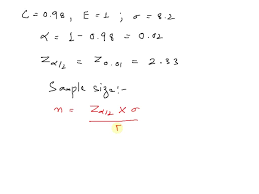 C = 0.98, E = 1 ; σ = 8.2
α = 1 - 0.98 = 0.02
Zα/2 = Z0.01 = 2.33
Sample size:-
n = Zα/2 × σ